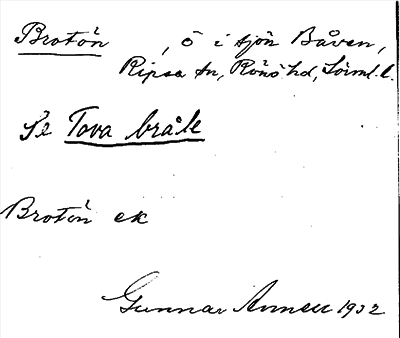 Brotön , ö i sjön Båven,
Ripsa sn, Rönö hd, Sörml. l.
Se Tova bråle
Brotön ek
Gunnar Annell 1932